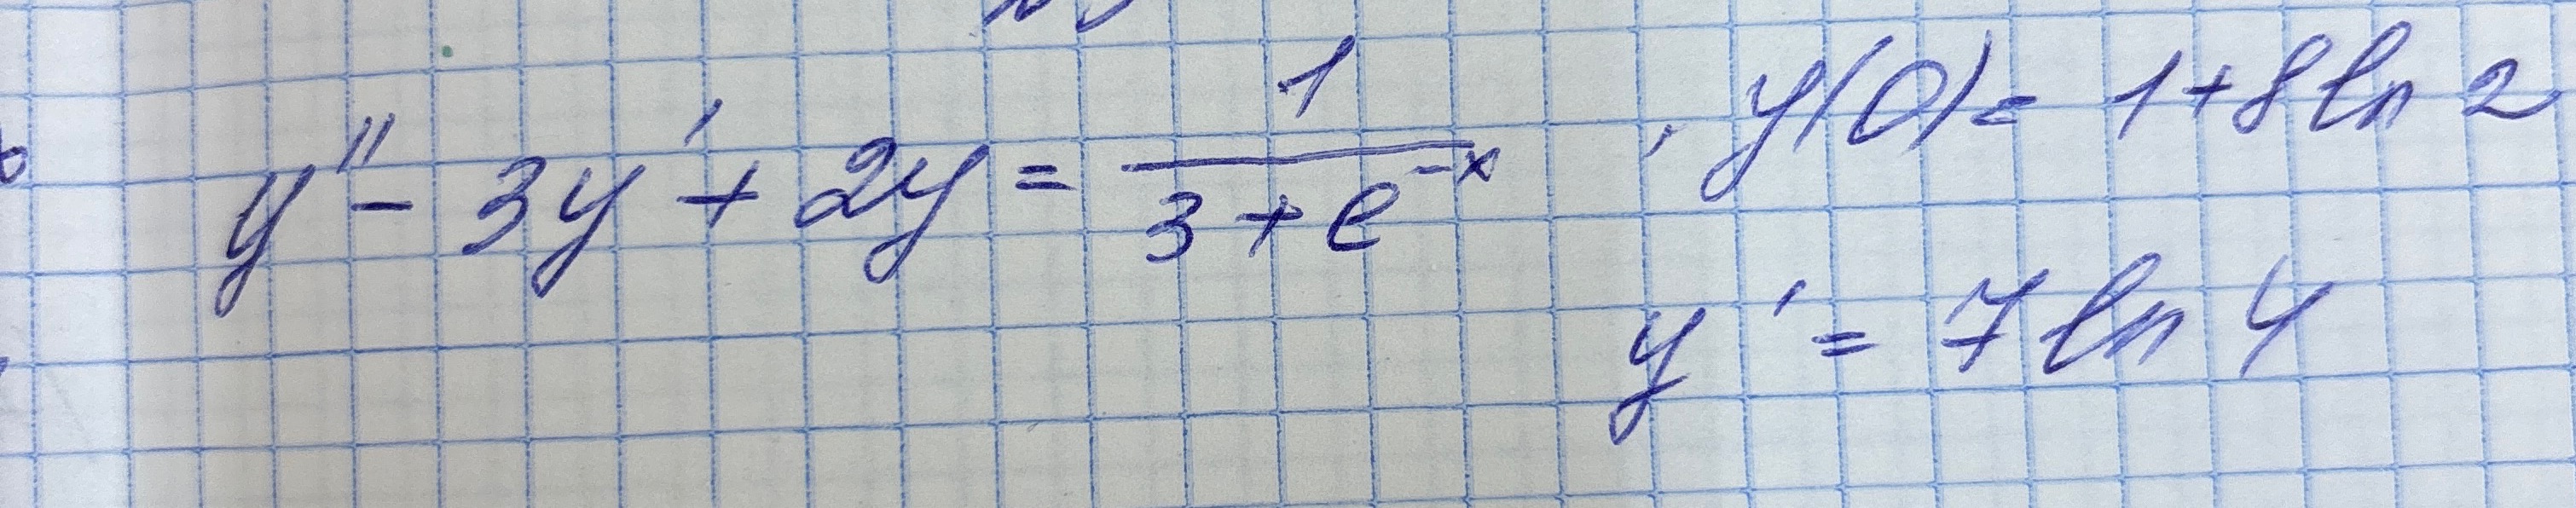 y'' - 3y' + 2y = 1/(3 + e^(-x)), y(0) = 1 + 8 ln 2
y' = 7 ln 4